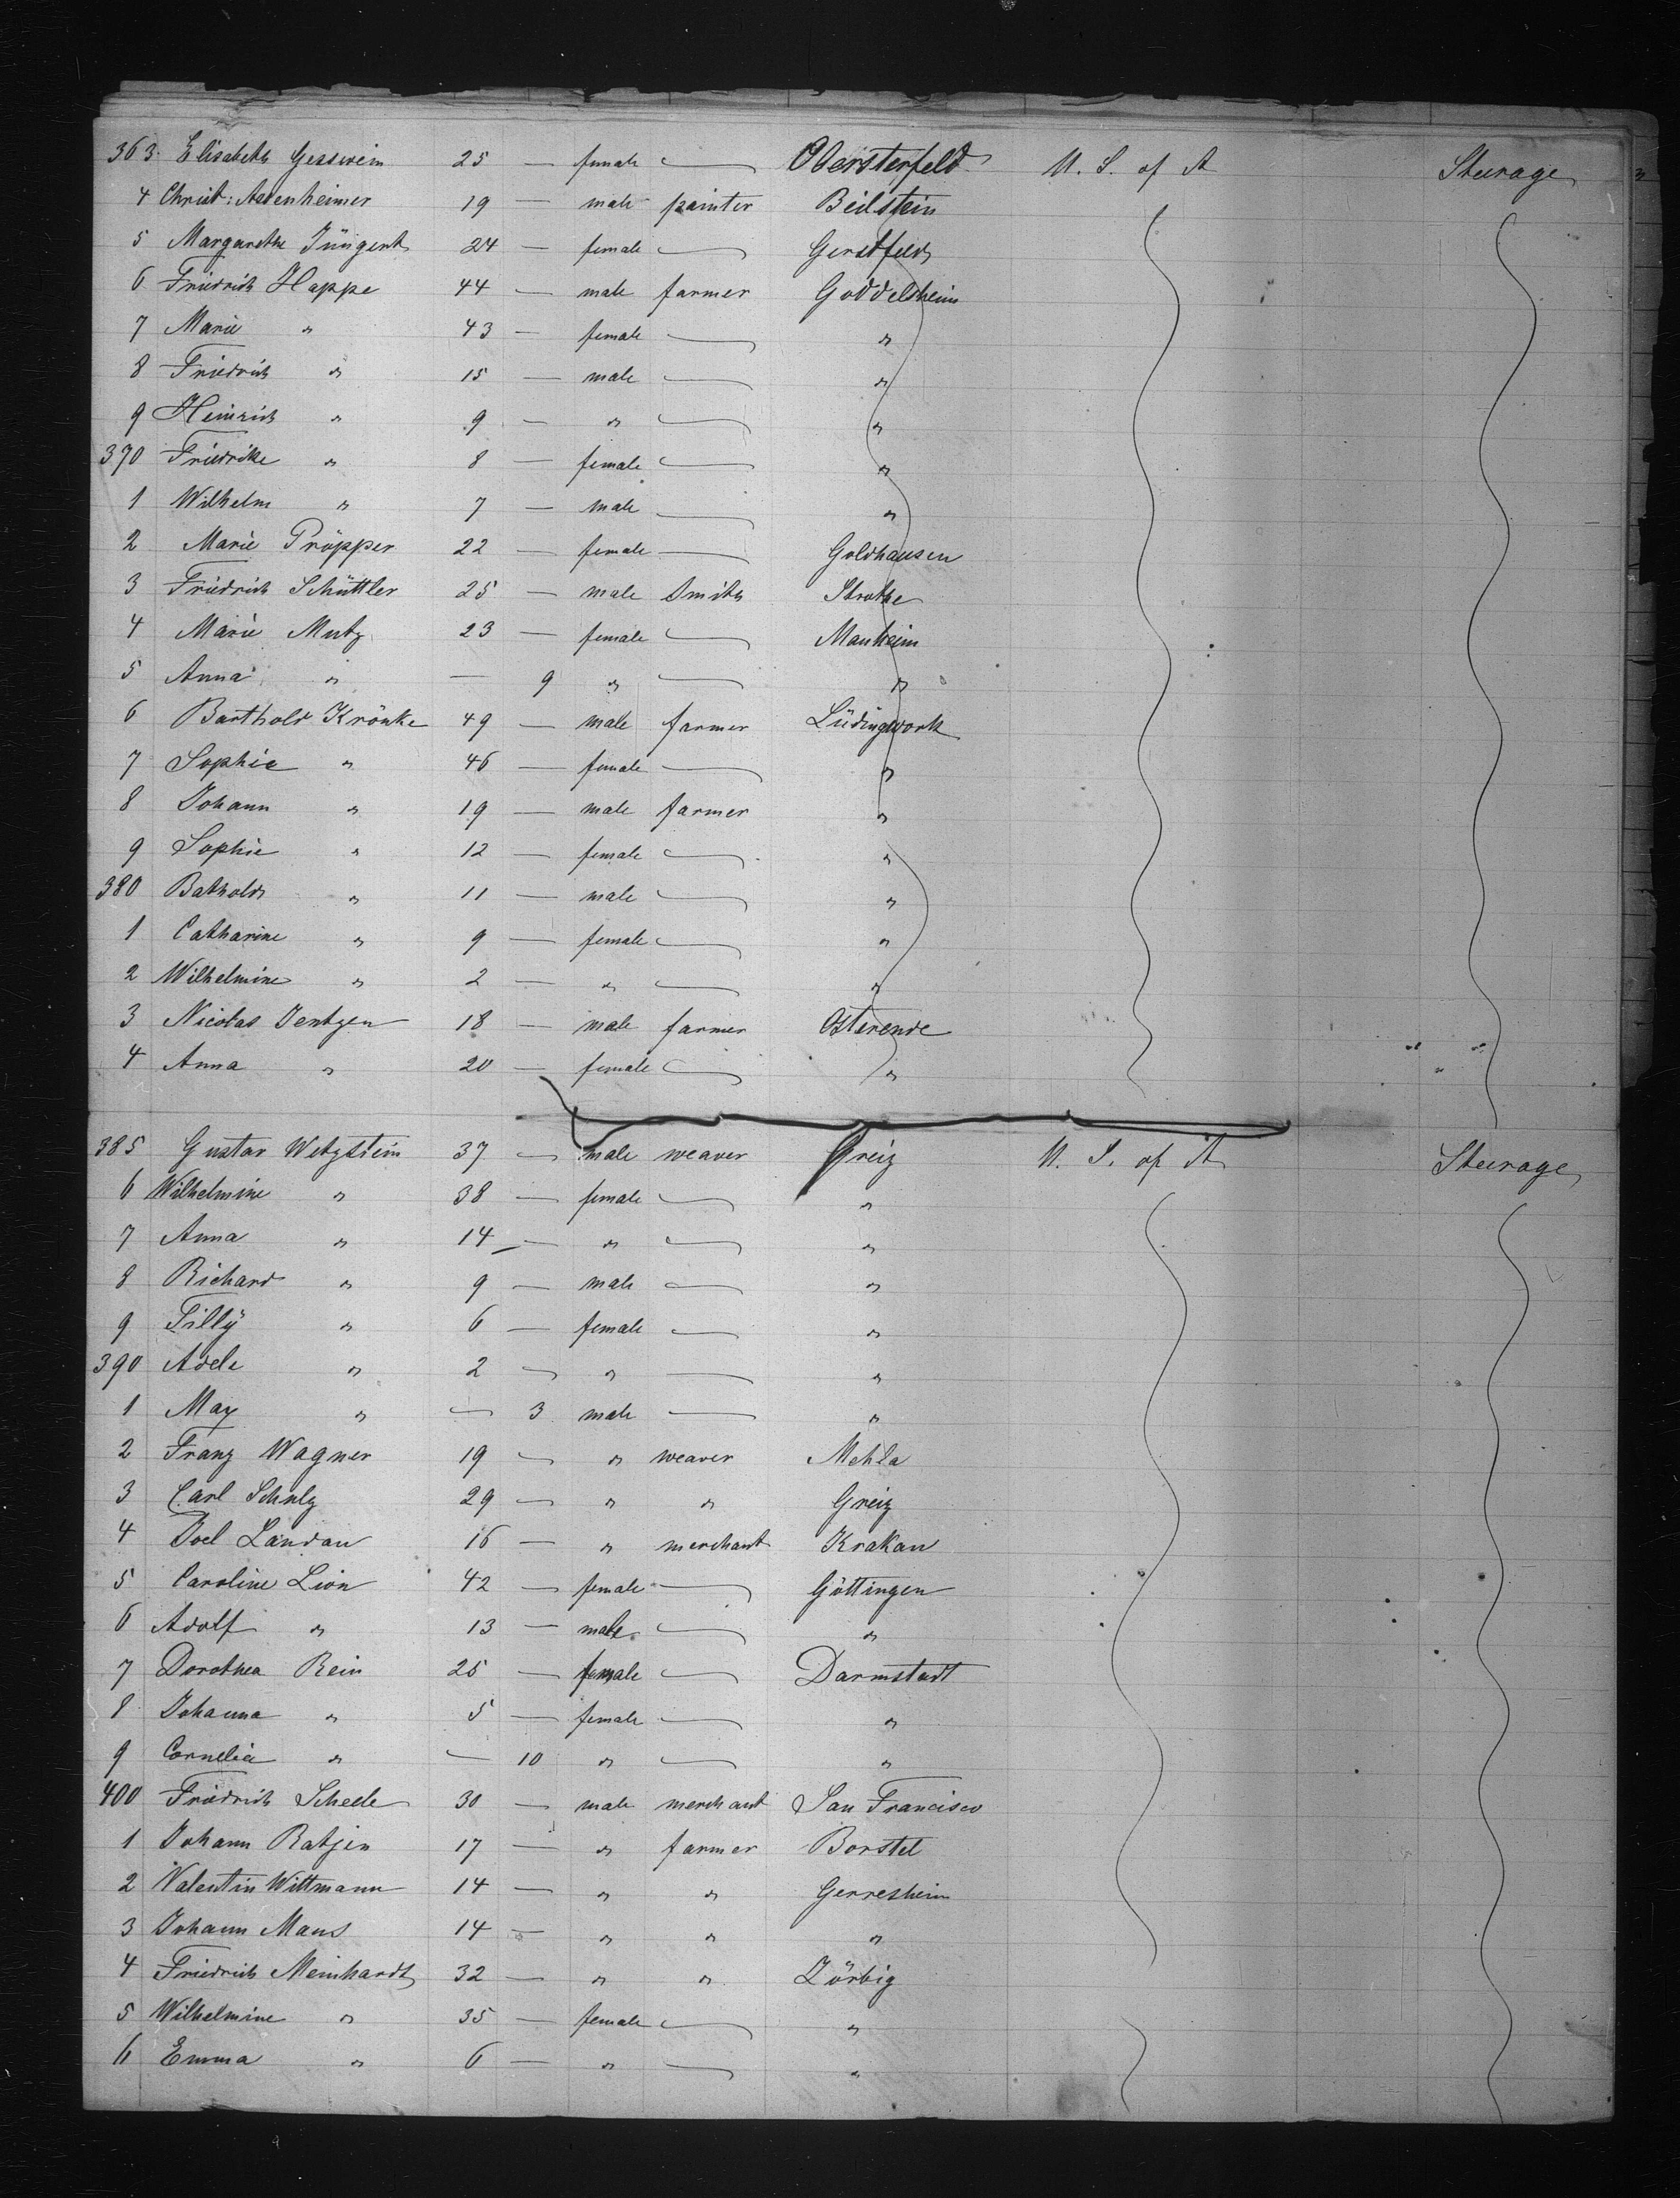 363 Elisabeth Gesswein 25 — female — Obersterfeld U. S. of A Steerage
4 Christ: Aetenheimer 19 — male painter Beilstein
5 Margarethe Jüngert 24 — female — Gerstfeld
6 Friedrich Happe 44 — male farmer Goddelsheim
7 Marie " 43 — female — "
8 Friedrich " 15 — male — "
9 Heinrich " 9 — " — "
370 Friedrike " 8 — female — "
1 Wilhelm " 7 — male — "
2 Marie Pröpper 22 — female — Goldhausen
3 Friedrich Schüttler 25 — male Smith Strothe
4 Marie Mutz 23 — female — Manheim
5 Anna " — 9 " — "
6 Barthold Krönke 49 — male farmer Lüdingwork
7 Sophie " 46 — female — "
8 Johann " 19 — male farmer "
9 Sophie " 12 — female — "
380 Bathold " 11 — male — "
1 Catharine " 9 — female — "
2 Wilhelmine " 2 — " — "
3 Nicolas Jentzen 18 — male farmer Osterende
4 Anna " 20 — female — "
385 Gustav Wetzstein 37 — male weaver Greiz U. S. of A Steerage
6 Wilhelmine " 38 — female — "
7 Anna " 14 — " — "
8 Richard " 9 — male — "
9 Tilly " 6 — female — "
390 Adele " 2 — " — "
1 Max " — 3 male — "
2 Franz Wagner 19 — " weaver Mehla
3 Carl Schulz 29 — " " Greiz
4 Joel Landau 16 — " merchant Krakau
5 Caroline Lion 42 — female — Göttingen
6 Adolf " 13 — male — "
7 Dorothea Rein 25 — female — Darmstadt
8 Johanna " 5 — female — "
9 Cornelia " — 10 " — "
400 Friedrich Scheele 30 — male merchant San Francisco
1 Johann Ratjen 17 — " farmer Borstel
2 Valentin Wittmann 14 — " " Gerresheim
3 Johann Maus 14 — " " "
4 Friedrich Meinhardt 32 — " " Zörbig
5 Wilhelmine " 35 — female — "
6 Emma " 6 — " — "